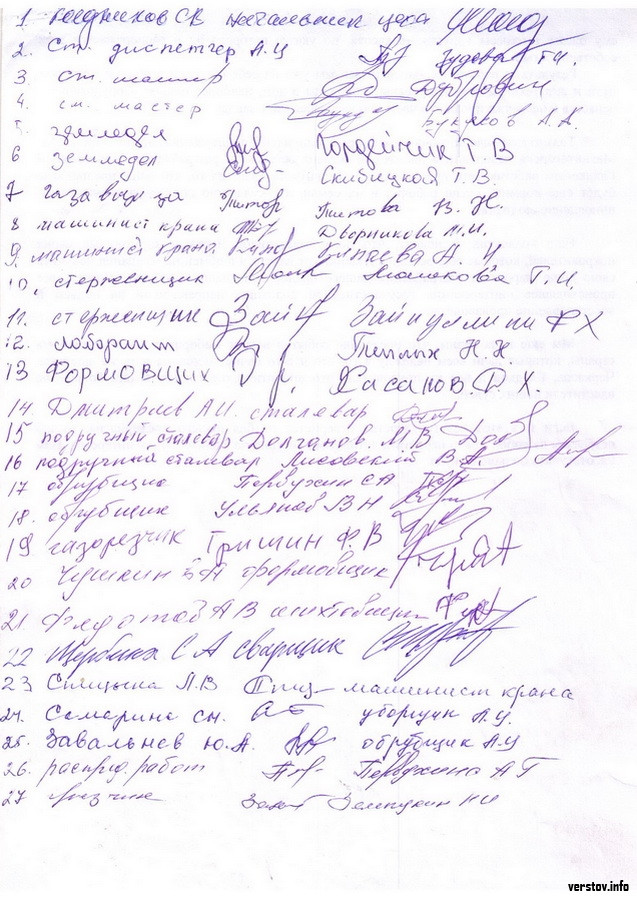 1. С.В. начальник цеха
2. Ст. диспетчер А.Ц Зудова Т.И.
3. ст. мастер Добрович
4. см. мастер А.А.
5. земледел Гордейчик Т.В
6 Земледел Скибицкая Т.В.
7 Титова В.Н.
8 машинист крана Дворникова М.И.
9. машинист крана А. И
10, стерженщик Т.И.
11. стерженщик Зайнуллина Ф Х
12. лаборант Теплых Н Х.
13 Формовщик Хасанов. Д Х.
14. Дмитриев А.И. сталевар
15 подручный сталевар Долганов. М.В
16 подручный сталевар Лисовский В.А.
17 обрубщик Первухин С А
18. обрубщик Ульянов В Н
19 газорезчик Гришин Ф.В
20 Чушкин формовщик
21. Федотов А В шихтовщик
22 Щербинх С А сварщик
23 Л.В машинист крана
24. Самарина сн. уборщик А.Ц.
25. Завальнев Ю.А. обрубщик А.Ц
26. распред. работ Первухина А Г
27 Н И
verstov.info